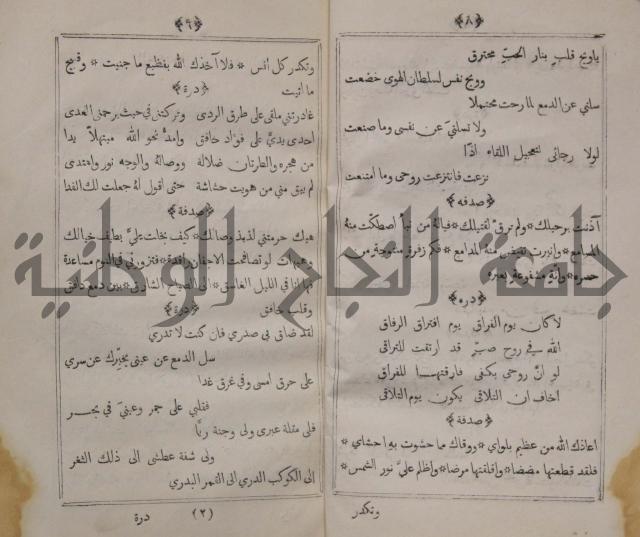 ﴿٨﴾
ياويح قلب بنار الحبّ محترق
وويح نفس لسلطان الهوى خضعت
سلني عن الدمع لما رحت محتملا
ولا تسلني عن نفسى وما صنعت
لولا رجائى لتعجيل اللقاء اذًا
نزعت فانتزعت روحى وما امتنعت
﴿صدفه﴾
آذنت برحيلك * ولم ترقّ لقتيلك * فياله من نبأ اصطكّت منهُ
المدامع * وانبرت تفيض منهُ المدامع * فكم زفرة متنوجة من
حسره * وأنّةٍ مشفوعة بعبرة
﴿دره﴾
لا كان يوم الفراق يوم افتراق الرفاق
الله فى روح صبّ قد ارتقت للتراقى
لو انّ روحى بكفى فارقتهـا للفراق
اخاف ان التلاقى يكون يوم التلاقى
﴿صدفة﴾
اعاذك الله من عظيم بلواي * ووقاك مما حشوت بهِ احشاي *
فلقد قطعتها مضضا * واقلقتها مرضا * واظلم عليّ نور الشمس *
وتكدر
﴿٩﴾
وتكدر كل أنس * فلا آخذك الله بفظيع ما جنيت * وقبيح
ما اتيت
﴿درة﴾
غادرتني ملقى على طرق الردى وتركتني في حيث يرحمنى العدى
احدى يديّ على فؤاد خافق وامدّ نحو الله مبتهلًا يدا
من هجره والطرتان ضلالة ووصاله والوجه نور واهتدى
لم يبق مني من هويت حشاشة حتى اقول لهُ جعلت لك الفدا
﴿صدفة﴾
هبك حرمتنى لذيذ وصالك * كيف بخلت عليّ بطيف خيالك
قلب خافق
﴿درة﴾
لقد ضاق بى صدري فان كنت لا تدري
سل الدمع عن عينى يخبّرك عن سري
على حرق امسى وفي غرق غدا
فقلبي على جمر وعينيَ في بحـر
فلى مقلة عبرى ولى وجنة ربّا
ولى شفة عطشى الى ذلك الثغر
الى الكوكب الدري الى القمر البدري
(٢)
درة
جامعة النجاح الوطنية